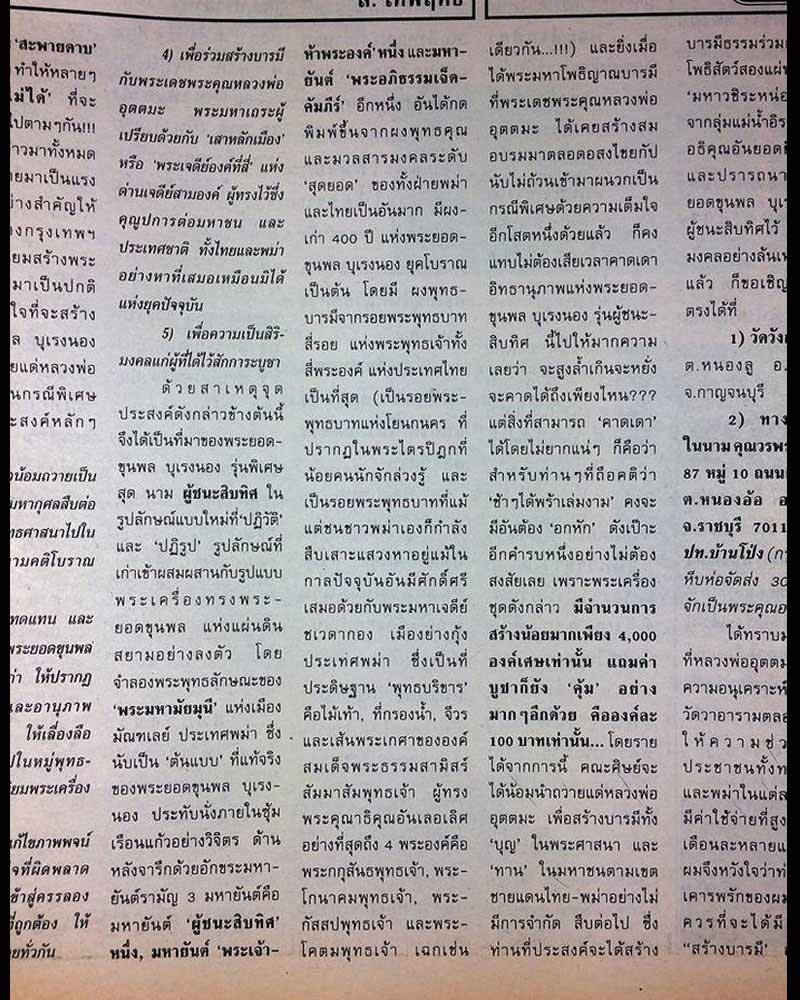 ส. เทพฤทธิ์
'สะพายดาบ'
ทำให้หลายๆ
ที่จะ
ไปตามๆกัน!!!
วมาทั้งหมด
มาเป็นแรง
สำคัญให้
กรุงเทพฯ
สร้างพระ
มาเป็นปกติ
ใจที่จะสร้าง
บุเรงนอง
แด่หลวงพ่อ
กรณีพิเศษ
สงค์หลักๆ
น้อมถวายเป็น
มหากุศลสืบต่อ
ศาสนาไปใน
ามคติโบราณ
ทดแทน และ
พระยอดขุนพล
ให้ปรากฏ
และอานุภาพ
ให้เลื่องลือ
ในหมู่พุทธ-
ยมพระเครื่อง
แก้ไขภาพพจน์
ที่ผิดพลาด
เข้าสู่ครรลอง
ที่ถูกต้อง ให้
ยทั่วกัน
4) เพื่อร่วมสร้างบารมี
กับพระเดชพระคุณหลวงพ่อ
อุตตมะ พระมหาเถระผู้
เปรียบด้วยกับ 'เสาหลักเมือง'
หรือ 'พระเจดีย์องค์ที่สี่' แห่ง
ด่านเจดีย์สามองค์ ผู้ทรงไว้ซึ่ง
คุณูปการต่อมหาชน และ
ประเทศชาติ ทั้งไทยและพม่า
อย่างหาที่เสมอเหมือนมิได้
แห่งยุคปัจจุบัน
5) เพื่อความเป็นสิริ-
มงคลแก่ผู้ที่ได้ไว้สักการะบูชา
ด้วยสาเหตุจุด
ประสงค์ดังกล่าวข้างต้นนี้
จึงได้เป็นที่มาของพระยอด-
ขุนพล บุเรงนอง รุ่นพิเศษ
สุด นาม ผู้ชนะสิบทิศ ใน
รูปลักษณ์แบบใหม่ที่'ปฏิวัติ'
และ 'ปฏิรูป' รูปลักษณ์ที่
เก่าเข้าผสมผสานกับรูปแบบ
พระเครื่องทรงพระ-
ยอดขุนพล แห่งแผ่นดิน
สยามอย่างลงตัว โดย
จำลองพระพุทธลักษณะของ
'พระมหามัยมุนี' แห่งเมือง
มัณฑเลย์ ประเทศพม่า ซึ่ง
นับเป็น 'ต้นแบบ' ที่แท้จริง
ของพระยอดขุนพล บุเรง-
นอง ประทับนั่งภายในซุ้ม
เรือนแก้วอย่างวิจิตร ด้าน
หลังจารึกด้วยอักขระมหา-
ยันต์รามัญ 3 มหายันต์คือ
มหายันต์ 'ผู้ชนะสิบทิศ'
หนึ่ง, มหายันต์ 'พระเจ้า-
ห้าพระองค์' หนึ่ง และมหา-
ยันต์ 'พระอภิธรรมเจ็ด-
คัมภีร์' อีกหนึ่ง อันได้กด
พิมพ์ขึ้นจากผงพุทธคุณ
และมวลสารมงคลระดับ
'สุดยอด' ของทั้งฝ่ายพม่า
และไทยเป็นอันมาก มีผง-
เก่า 400 ปี แห่งพระยอด-
ขุนพล บุเรงนอง ยุคโบราณ
เป็นต้น โดยมี ผงพุทธ-
บารมีจากรอยพระพุทธบาท
สี่รอย แห่งพระพุทธเจ้าทั้ง
สี่พระองค์ แห่งประเทศไทย
เป็นที่สุด (เป็นรอยพระ-
พุทธบาทแห่งโยนกนคร ที่
ปรากฏในพระไตรปิฎกที่
น้อยคนนักจักล่วงรู้ และ
เป็นรอยพระพุทธบาทที่แม้
แต่ชนชาวพม่าเองก็กำลัง
สืบเสาะแสวงหาอยู่แม้ใน
กาลปัจจุบันอันมีศักดิ์ศรี
เสมอด้วยกับพระมหาเจดีย์
ชเวดากอง เมืองย่างกุ้ง
ประเทศพม่า ซึ่งเป็นที่
ประดิษฐาน 'พุทธบริขาร'
คือไม้เท้า, ที่กรองน้ำ, จีวร
และเส้นพระเกศาขององค์
สมเด็จพระธรรมสามิสร์
สัมมาสัมพุทธเจ้า ผู้ทรง
พระคุณาธิคุณอันเลอเลิศ
อย่างที่สุดถึง 4 พระองค์คือ
พระกกุสันธพุทธเจ้า, พระ-
โกนาคมพุทธเจ้า, พระ-
กัสสปพุทธเจ้า และพระ-
โคตมพุทธเจ้า เฉกเช่น
เดียวกัน...!!!) และยิ่งเมื่อ
ได้พระมหาโพธิญาณบารมี
ที่พระเดชพระคุณหลวงพ่อ
อุตตมะ ได้เคยสร้างสม
อบรมมาตลอดอสงไขยกัป
นับไม่ถ้วนเข้ามาผนวกเป็น
กรณีพิเศษด้วยความเต็มใจ
อีกโสตหนึ่งด้วยแล้ว ก็คง
แทบไม่ต้องเสียเวลาคาดเดา
อิทธานุภาพแห่งพระยอด-
ขุนพล บุเรงนอง รุ่นผู้ชนะ-
สิบทิศ นี้ไปให้มากความ
เลยว่า จะสูงล้ำเกินจะหยั่ง
จะคาดได้ถึงเพียงไหน???
แต่สิ่งที่สามารถ 'คาดเดา'
ได้โดยไม่ยากแน่ๆ ก็คือว่า
สำหรับท่านๆที่ถือคติว่า
'ช้าๆได้พร้าเล่มงาม' คงจะ
มีอันต้อง 'อกหัก' ดังเป๊าะ
อีกคำรบหนึ่งอย่างไม่ต้อง
สงสัยเลย เพราะพระเครื่อง
ชุดดังกล่าว มีจำนวนการ
สร้างน้อยมากเพียง 4,000
องค์เศษเท่านั้น แถมค่า
บูชาก็ยัง 'คุ้ม' อย่าง
มากๆอีกด้วย คือองค์ละ
100 บาทเท่านั้น... โดยราย
ได้จากการนี้ คณะศิษย์จะ
ได้น้อมนำถวายแด่หลวงพ่อ
อุตตมะ เพื่อสร้างบารมีทั้ง
'บุญ' ในพระศาสนา และ
'ทาน' ในมหาชนตามเขต
ชายแดนไทย-พม่าอย่างไม่
มีการจำกัด สืบต่อไป ซึ่ง
ท่านที่ประสงค์จะได้สร้าง
บารมีธรรมร่วม
โพธิสัตว์สองแผ่น
'มหาวชิระหน่อ
จากลุ่มแม่น้ำอิร
อธิคุณอันยอดยิ่
และปรารถนา
ยอดขุนพล บุเ
ผู้ชนะสิบทิศไว้
มงคลอย่างล้นเ
แล้ว ก็ขอเชิญ
ตรงได้ที่
1) วัดวัง
ต.หนองลู อ.
จ.กาญจนบุรี
2) ทาง
ในนาม คุณวรพ
87 หมู่ 10 ถนน
ต.หนองอ้อ อ
จ.ราชบุรี 7011
ปท.บ้านโป่ง (ก
หีบห่อจัดส่ง 30
จักเป็นพระคุณอ
ได้ทราบม
ที่หลวงพ่ออุตตม
ความอนุเคราะห์
วัดวาอารามตลอ
ให้ความช่ว
ประชาชนทั้งท
และพม่าในแต่ล
มีค่าใช้จ่ายที่สูง
เดือนละหลายแ
ผมจึงหวังใจว่าท
เคารพรักของผม
ควรที่จะได้มี
"สร้างบารมี'